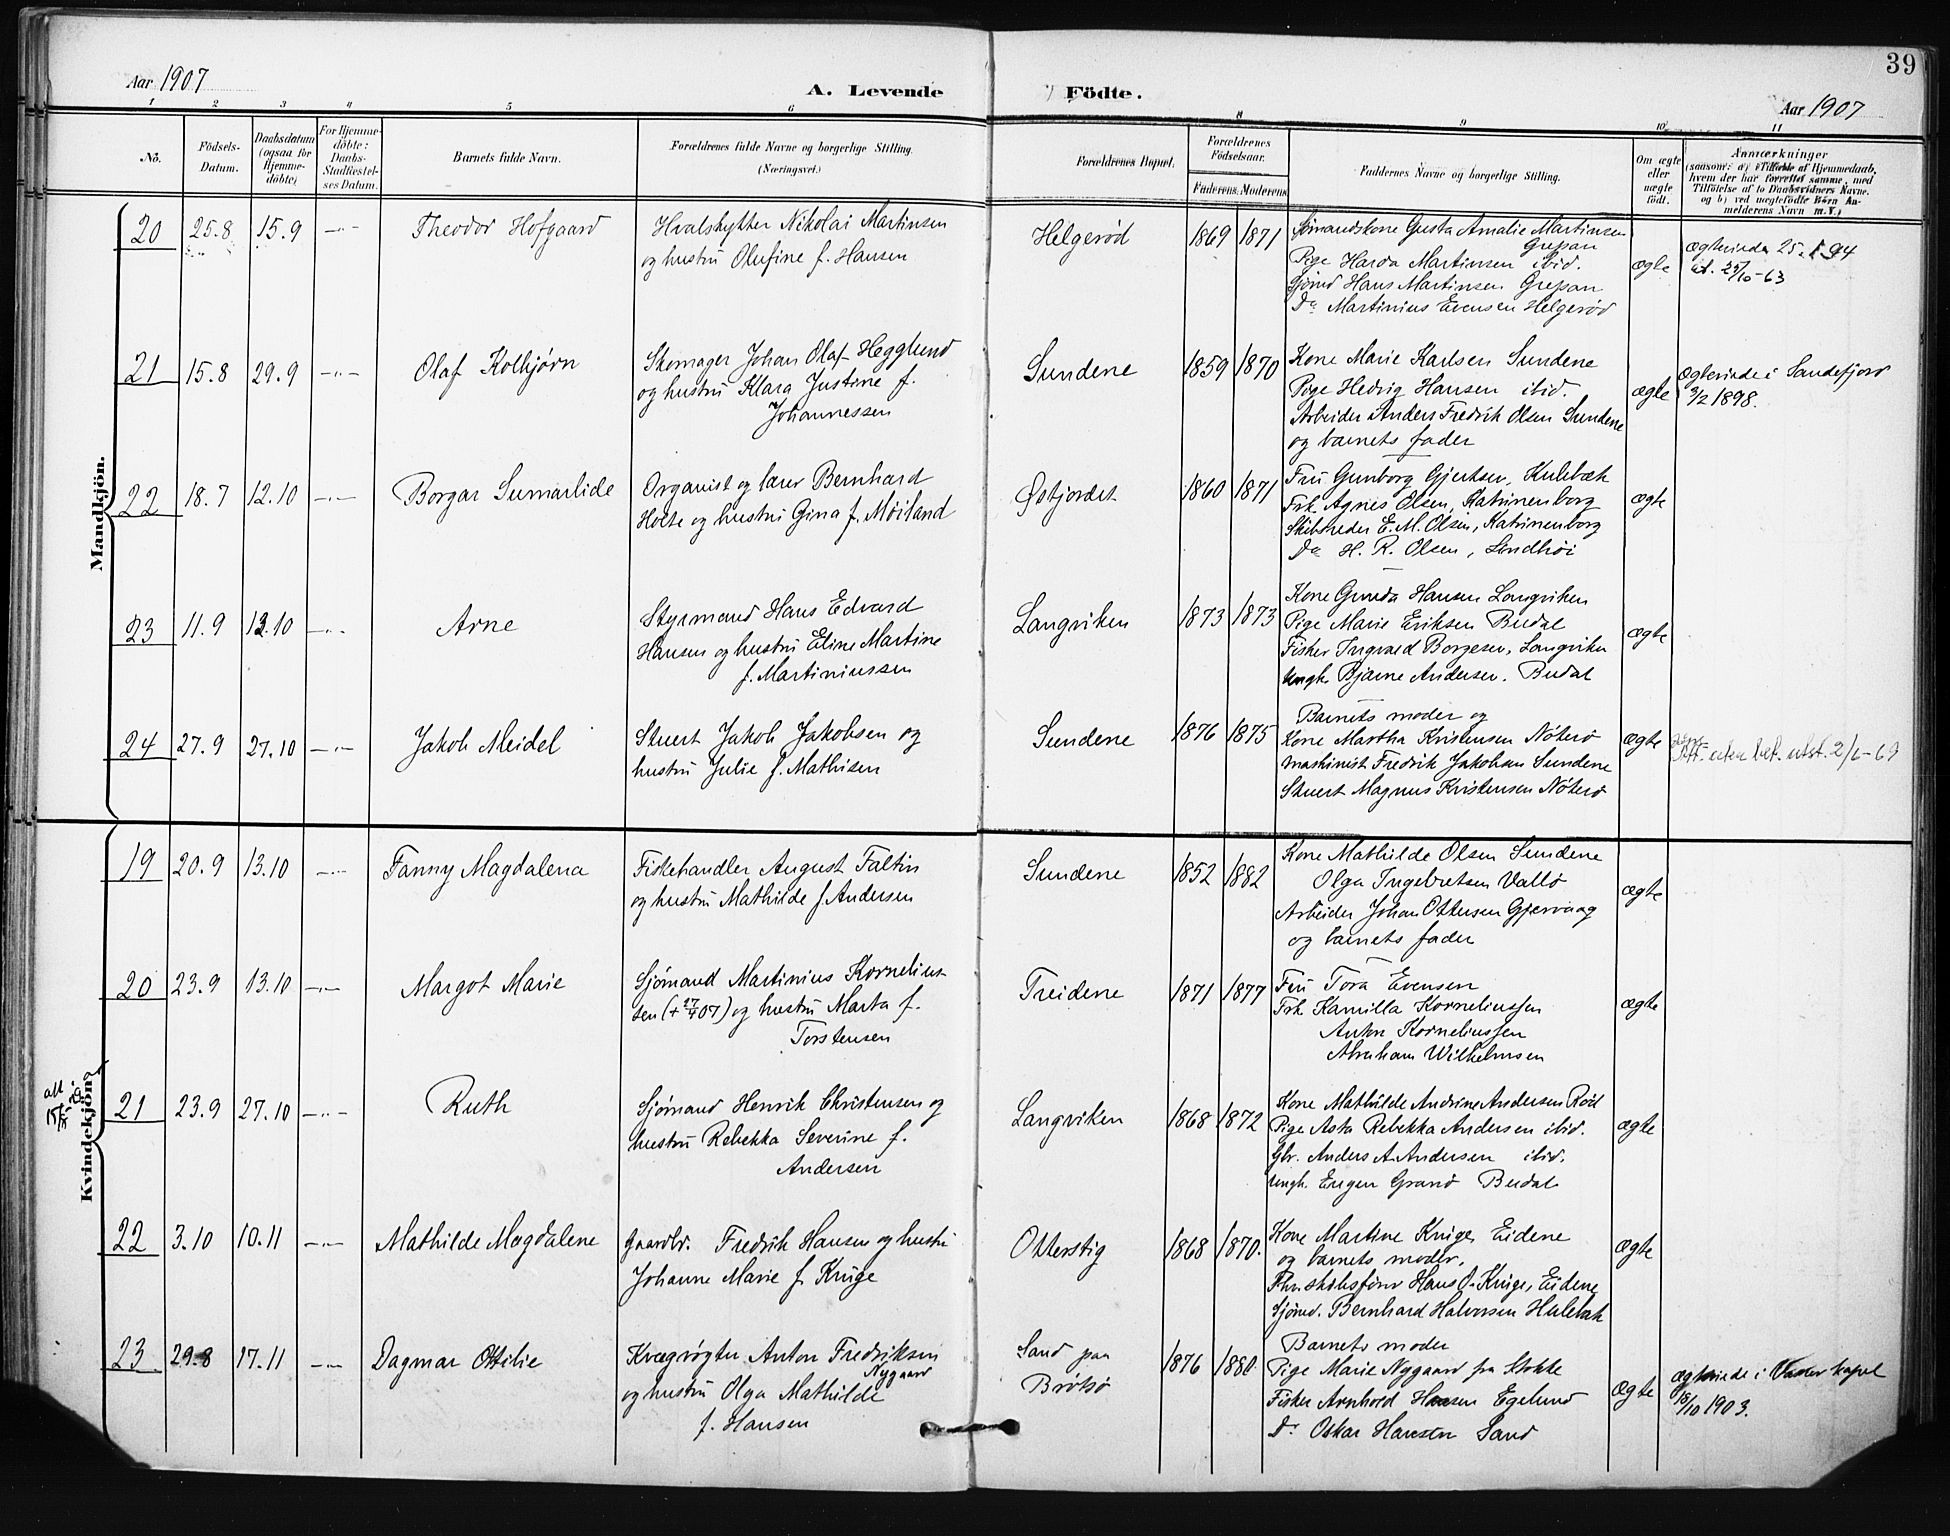 39
Aar 1907
A. Levende Födte.
Aar 1907
1 2 3 4 5 6 8 9 10 11
No.
Födsels-
Datum.
Daabsdatum
(ogsaa for
Hjemme-
döbte)
For Hjemme-
döbte:
Daabs-
Stadfæstel-
ses Datum.
Barnets fulde Navn.
Forældrenes fulde Navne og borgerlige Stilling.
(Næringsvei.)
Forældrenes Bopæl.
Forældrenes
Födselsaar.
Faderens. Moderens
Faddernes Navne og borgerlige Stilling.
Om ægte
eller
uægte
födt.
Anmærkninger
(saasom: a) Tilfælde af Hjemmedaab,
hvem der har forrettet samme, med
Tilföielse af to Daabsvidners Navne.
og b) ved uægtefödte Börn An-
melderens Navn m.V.)
Mandkjön.
20 25.8 15.9 —"— Theodor Hofgaard
Hvalskytter Nikolai Martinsen
og hustru Olufine f. Hansen
Helgerød 1869 1871
Sjømandskone Gusta Amalie Martinsen
Grepan
Pige Harda Martinsen ibid.
Sjømd Hans Martinsen Grepan
Do Martinius Evensen Helgerød
ægte
Ægteviede 25.
21 15.8 29.9 —"— Olaf Kolbjørn
Skomager Johan Olaf Hegglund
og hustru Klara Justine f.
Johannessen
Sundene 1859 1870
Kone Marie Karlsen Sundene
Pige Hedvig Hansen ibid.
Arbeider Anders Fredrik Olsen Sundene
og barnets fader
ægte
Ægteviede i Sandefjord
3/2 1898.
22 18.7 12.10 —"— Borgar Sumarlide
Organist og lærer Bernhard
Holte og hustru Gina f. Møiland
Østjordet 1860 1871
Fru Gunborg Gjertsen, Hulebæk
Frk. Agnes Olsen, Katrinenborg
Skibsreder E. M. Olsen, Katrinenborg
Do H. R. Olsen, Lindhøi
ægte
23 11.9 13.10 —"— Arne
Styrmand Hans Edvard
Hansen og hustru Eline Martine
f. Martiniussen
Langviken 1873 1873
Kone Gunda Hansen Langviken
Pige Marie Eriksen Budal
Fisker Ingvald Borgesen, Langviken
Ungk. Bjarne Andersen. Budal
ægte
24 27.9 27.10 —"— Jakob Meidel
Stuert Jakob Jakobsen og
hustru Julie f. Mathisen
Sundene 1876 1875
Barnets moder og
Kone Martha Kristensen Nøterø
Maskinist Fredrik Jakobsen Sundene
Stuert Magnus Kristensen Nøterø
ægte
Kvindekjön.
19 20.9 13.10 —"— Fanny Magdalena
Fiskehandler August Faltin
og hustru Mathilde f. Andersen
Sundene 1852 1882
Kone Mathilde Olsen Sundene
Olga Ingebretsen Vallø
Arbeider Johan Ottersen Gjervaag
og barnets fader
ægte
20 23.9 13.10 —"— Margot Marie
Sjømand Martinius Kornelius-
sen (+ 07) og hustru Marta f.
Torstensen
Treidene 1871 1877
Fru Tora Evensen
Frk. Kamilla Korneliussen
Anton Korneliussen
Abraham Wilhelmsen
ægte
21 23.9 27.10 —"— Ruth
Sjømand Henrik Christensen og
hustru Rebekka Severine f.
Andersen
Langviken 1868 1872
Kone Mathilde Andrine Andersen Rød
Pige Asta Rebekka Andersen ibid.
Gbr. Anders A. Andersen ibid.
Ungk. Eugen Granø Budal
ægte
22 3.10 10.11 —"— Mathilde Magdalene
Gaardbr. Fredrik Hansen og hustru
Johanne Marie f. Kruge
Otterstig 1868 1870.
Kone Martine Kruge, Eidene
og barnets moder.
Fhv. skibsfører Hans O. Kruge, Eidene
Sjømd. Bernhard Halvorsen Hulebæk
ægte
23 29.8 17.11 —"— Dagmar Ottilie
Kvægrøgter Anton Fredriksen
Nygaard
og hustru Olga Mathilde
f. Hansen
Sand paa
Brøtsø
1876 1880
Barnets moder
Pige Marie Nygaard fra Stokke
Fisker Arnhold Hansen Egelund
Do Oskar Hansen Sand
ægte
ægteviede i kapel
18/10 1903.